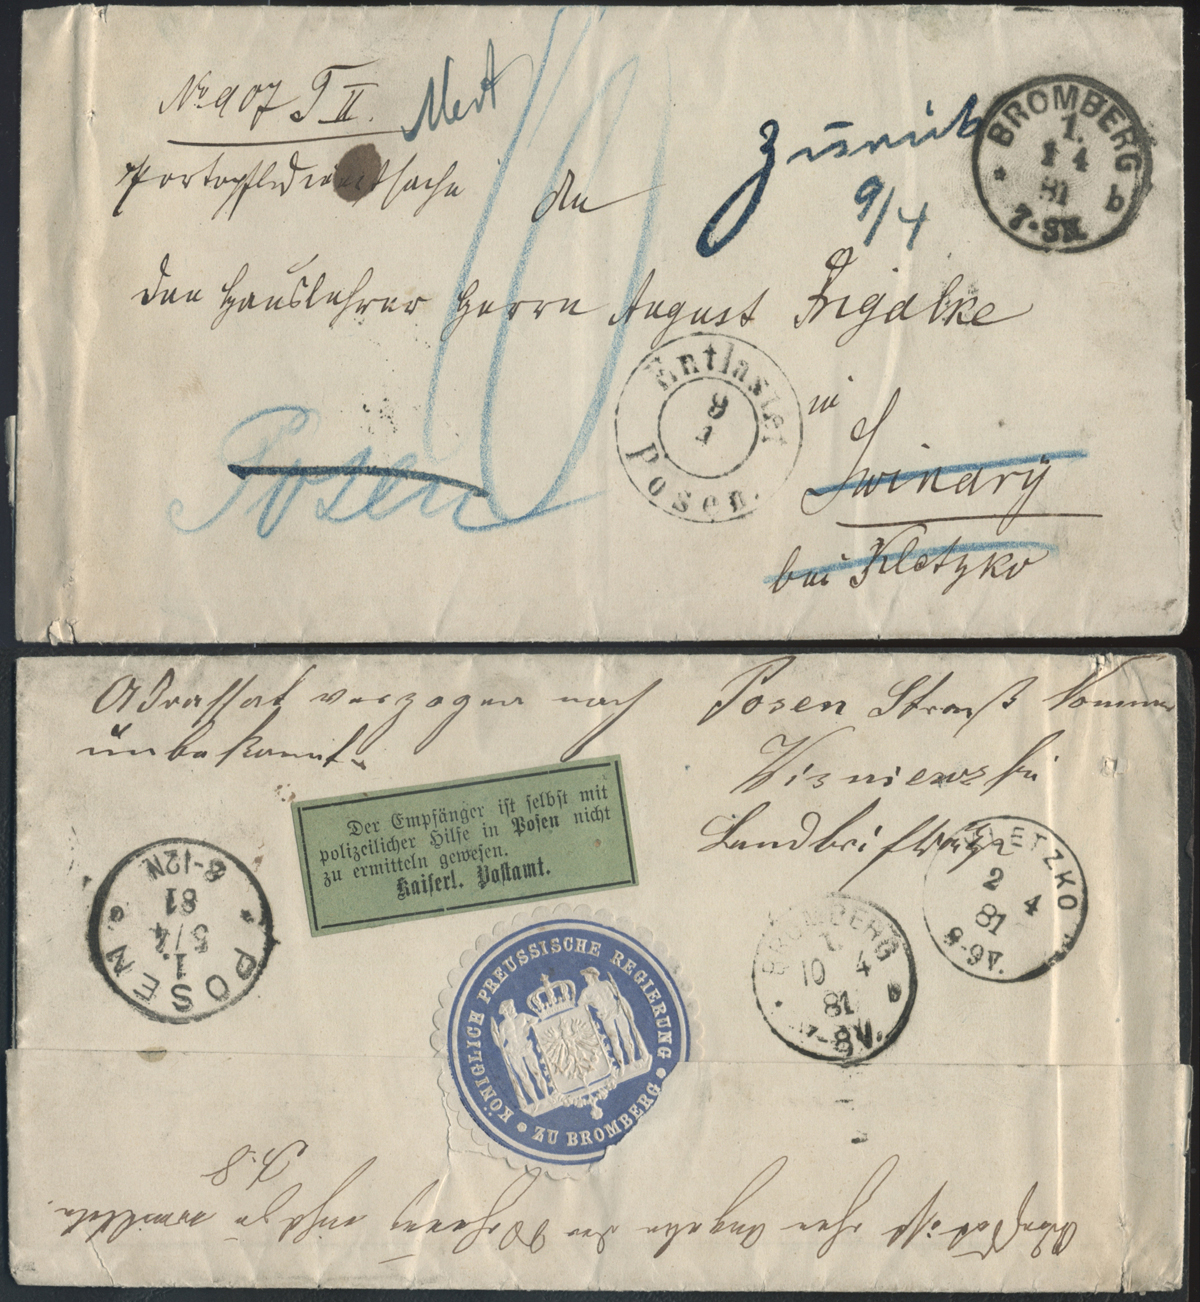 No 907 T II. Mert
Zurück
BROMBERG
1.
1 4
81
7-8N.
b
Portopfl. Dienstsache
9/4
den Hauslehrer Herrn August
in
Entlastet
8
Posen.
Posen
Swinary
bei Kletzko
Adressat verzogen nach Posen
unbekannt.
Landbriefträger
Der Empfänger ist selbst mit
polizeilicher Hilfe in Posen nicht
zu ermitteln gewesen.
Kaiserl. Postamt.
POSEN
1.
5/4
81
8-12N.
KLETZKO
2 4
81
8-9V.
BROMBERG
1.
10 4
81
7-8V.
b
KÖNIGLICH PREUSSISCHE REGIERUNG
ZU BROMBERG
Adressat ist ohne Angabe der Wohnung nicht zu ermitteln.